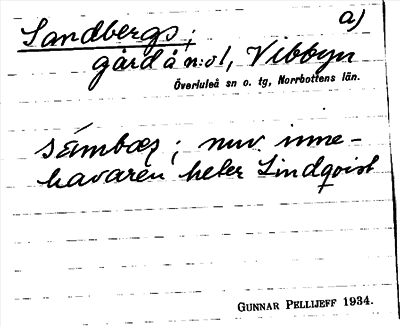 Sandbergs; a)
gård å n:o 1, Vibbyn
Överluleå sn o. tg, Norrbottens län.
nuv. inne-
havaren heter Lindqvist
GUNNAR PELLIJEFF 1934.